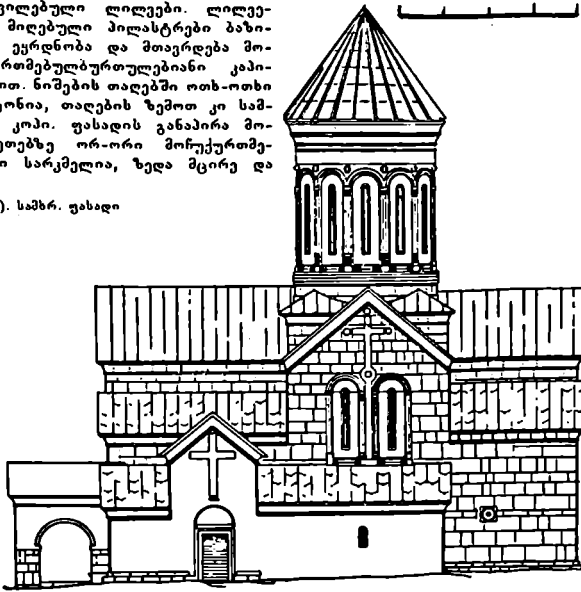 ვილებული ლილვები. ლილვე-
მიღებული პილასტრები ბაზი-
ეყრდნობა და მთავრდება მო-
რთმებულბურთულებიანი კაპი-
ით. ნიშების თაღებში ოთხ-ოთხი
ონია, თაღების ზემოთ კი სამ-
კოპი. ფასადის განაპირა მო-
ეთებზე ორ-ორი მოჩუქურთმე-
ი სარკმელია, ზედა მცირე და
). სამხრ. ფასადი